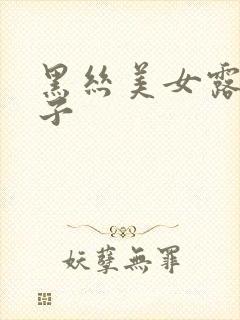 黑丝美女露
子
妖孽無罪